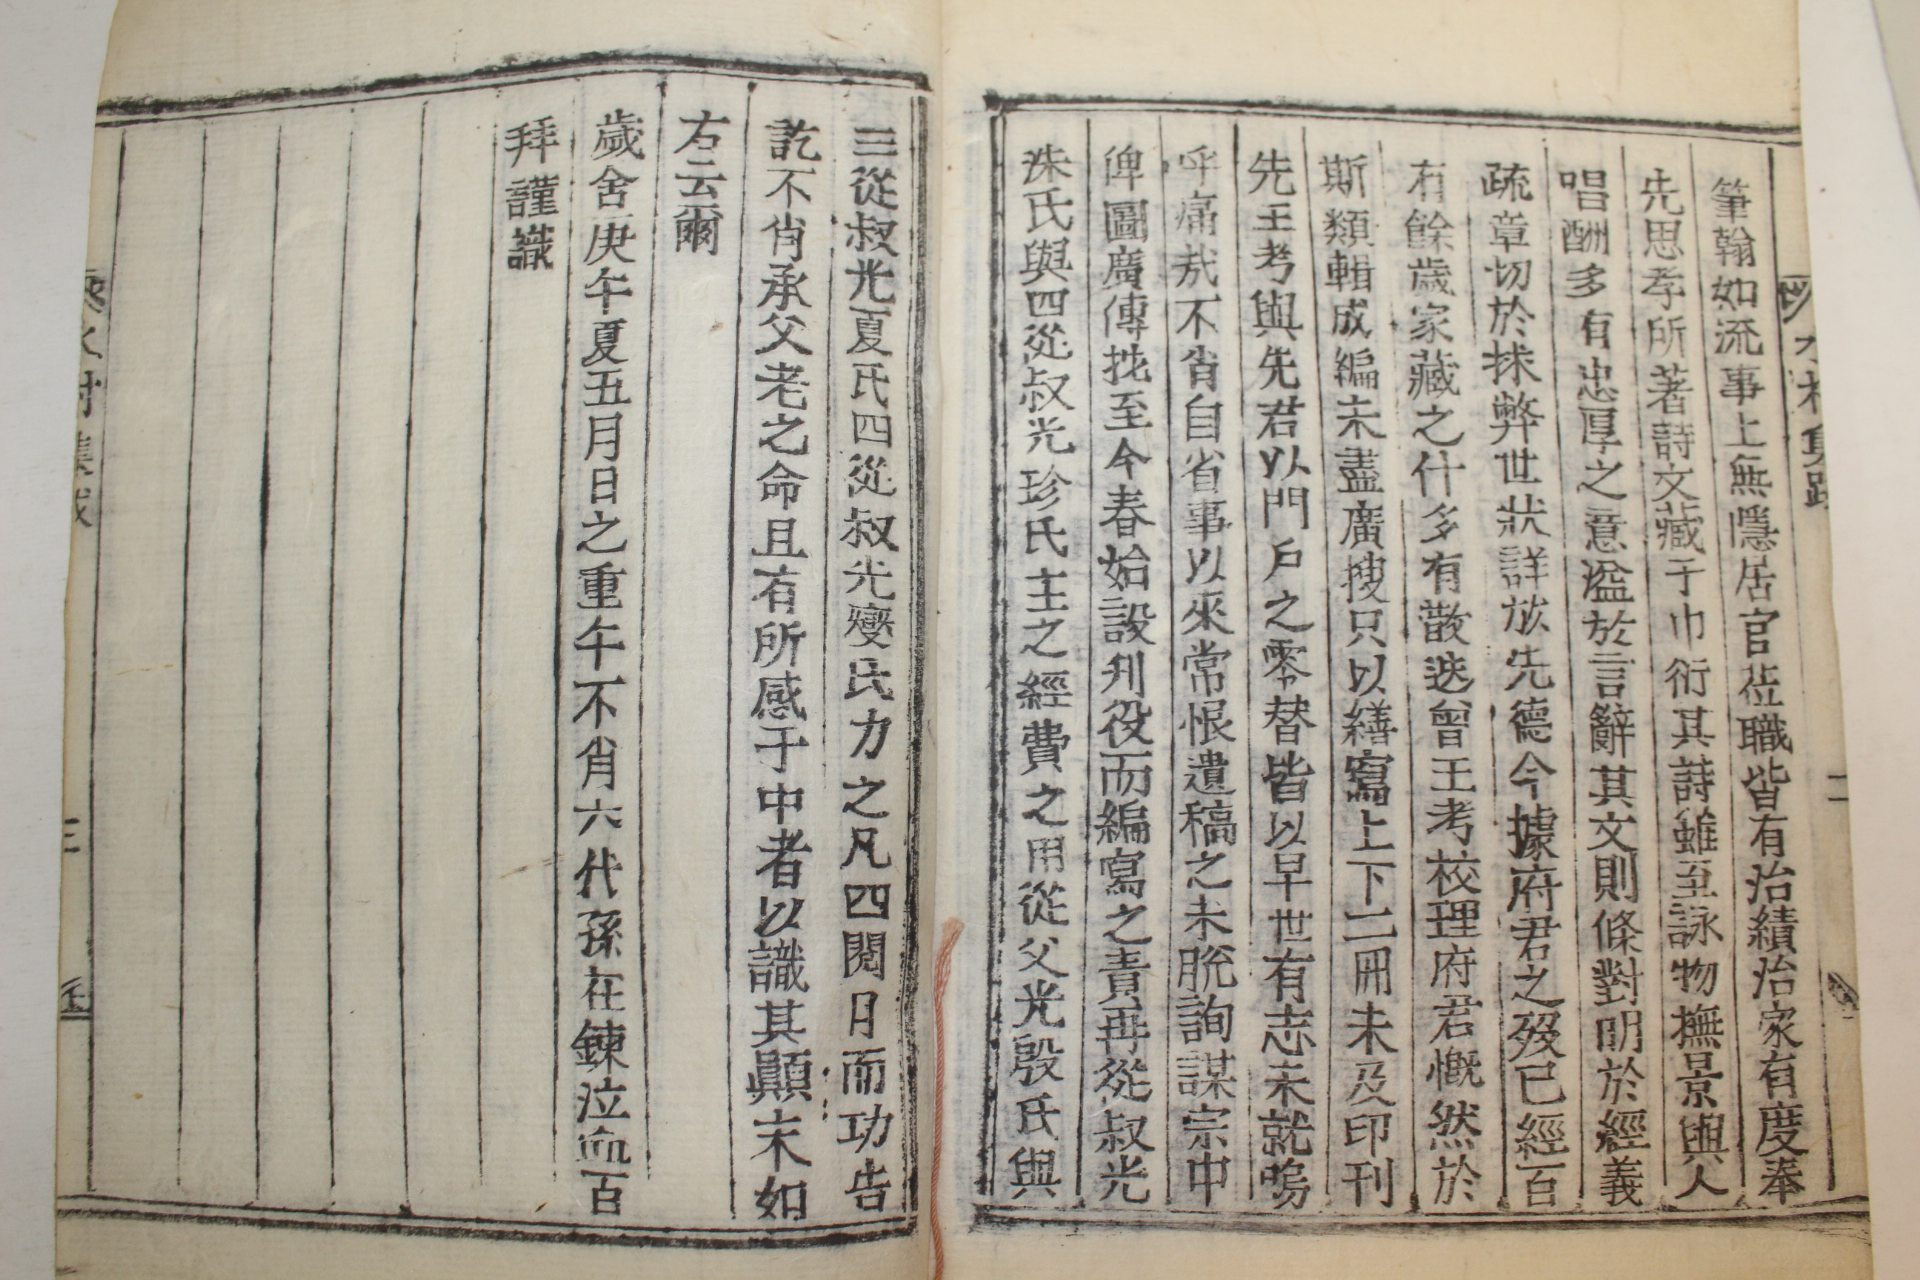 筆翰如流事上無隱居官莅職皆有治績治家有度奉
先思孝所著詩文藏于巾衍其詩雖至詠物撫景與人
唱酬多有忠厚之意溢於言辭其文則條對明於經義
疏章切於捄弊世狀詳於先德今據府君之歿已經百
有餘歲家藏之什多有散迭曾王考校理府君慨然於
斯類輯成編未盡廣搜只以繕寫上下二冊未及印刊
先王考與先君以門戶之零替皆以早世有志未就嗚
呼痛哉不肖自省事以來常恨遺稿之未脫詢謀宗中
俾圖廣傳拕至今春始設刋役而編寫之責再從叔光
洙氏與四從叔光珍氏主之經費之用從父光殷氏與
三從叔光夏氏四從叔光燮氏力之凡四閱日而功告
訖不肖承父老之命且有所感于中者以識其顚末如
右云爾
歲舍庚午夏五月日之重午不肖六代孫在鍊泣血百
拜謹識
三